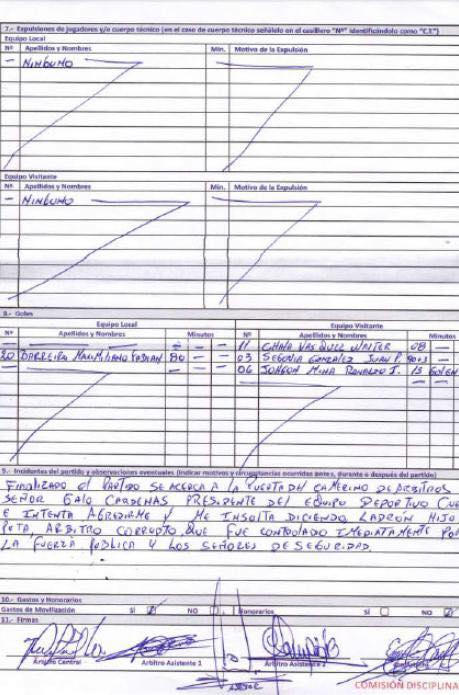 7.- Expulsiones de jugadores y/o cuerpo técnico (en el caso de cuerpo técnico señálelo en el casillero "Nº" identificándolo como "C.T.")
Equipo Local
Nº Apellidos y Nombres Min. Motivo de la Expulsión
- NINGUNO
Equipo Visitante
Nº Apellidos y Nombres Min. Motivo de la Expulsión
- NINGUNO
8.- Goles
Equipo Local Equipo Visitante
Nº Apellidos y Nombres Minutos Nº Apellidos y Nombres Minutos
11 CHALA VASQUEZ WALTER 08 -
20 BARREIRO MAXIMILIANO FABIAN 80 - - 03 SEGOVIA GONZALEZ JUAN P. 90+3 -
06 MINA RONALDO J. 15
9.- Incidentes del partido y observaciones eventuales (Indicar motivos y circunstancias ocurridas antes, durante o después del partido)
FINALIZADO EL PARTIDO SE ACERCA A LA PUERTA DEL CAMERINO DE ARBITROS
SEÑOR GALO CARDENAS PRESIDENTE DEL EQUIPO DEPORTIVO CUE
E INTENTA AGREDIRME Y ME INSULTA DICIENDO LADRON HIJO
PUTA ARBITRO CORRUPTO, QUE FUE CONTROLADO INMEDIATAMENTE POR
LA FUERZA PUBLICA Y LOS SEÑORES DE SEGURIDAD.
10.- Gastos y Honorarios
Gastos de Movilización SI NO Honorarios SI NO
11.- Firmas
Arbitro Central Arbitro Asistente 1 Arbitro Asistente 2
COMISIÓN DISCIPLINA